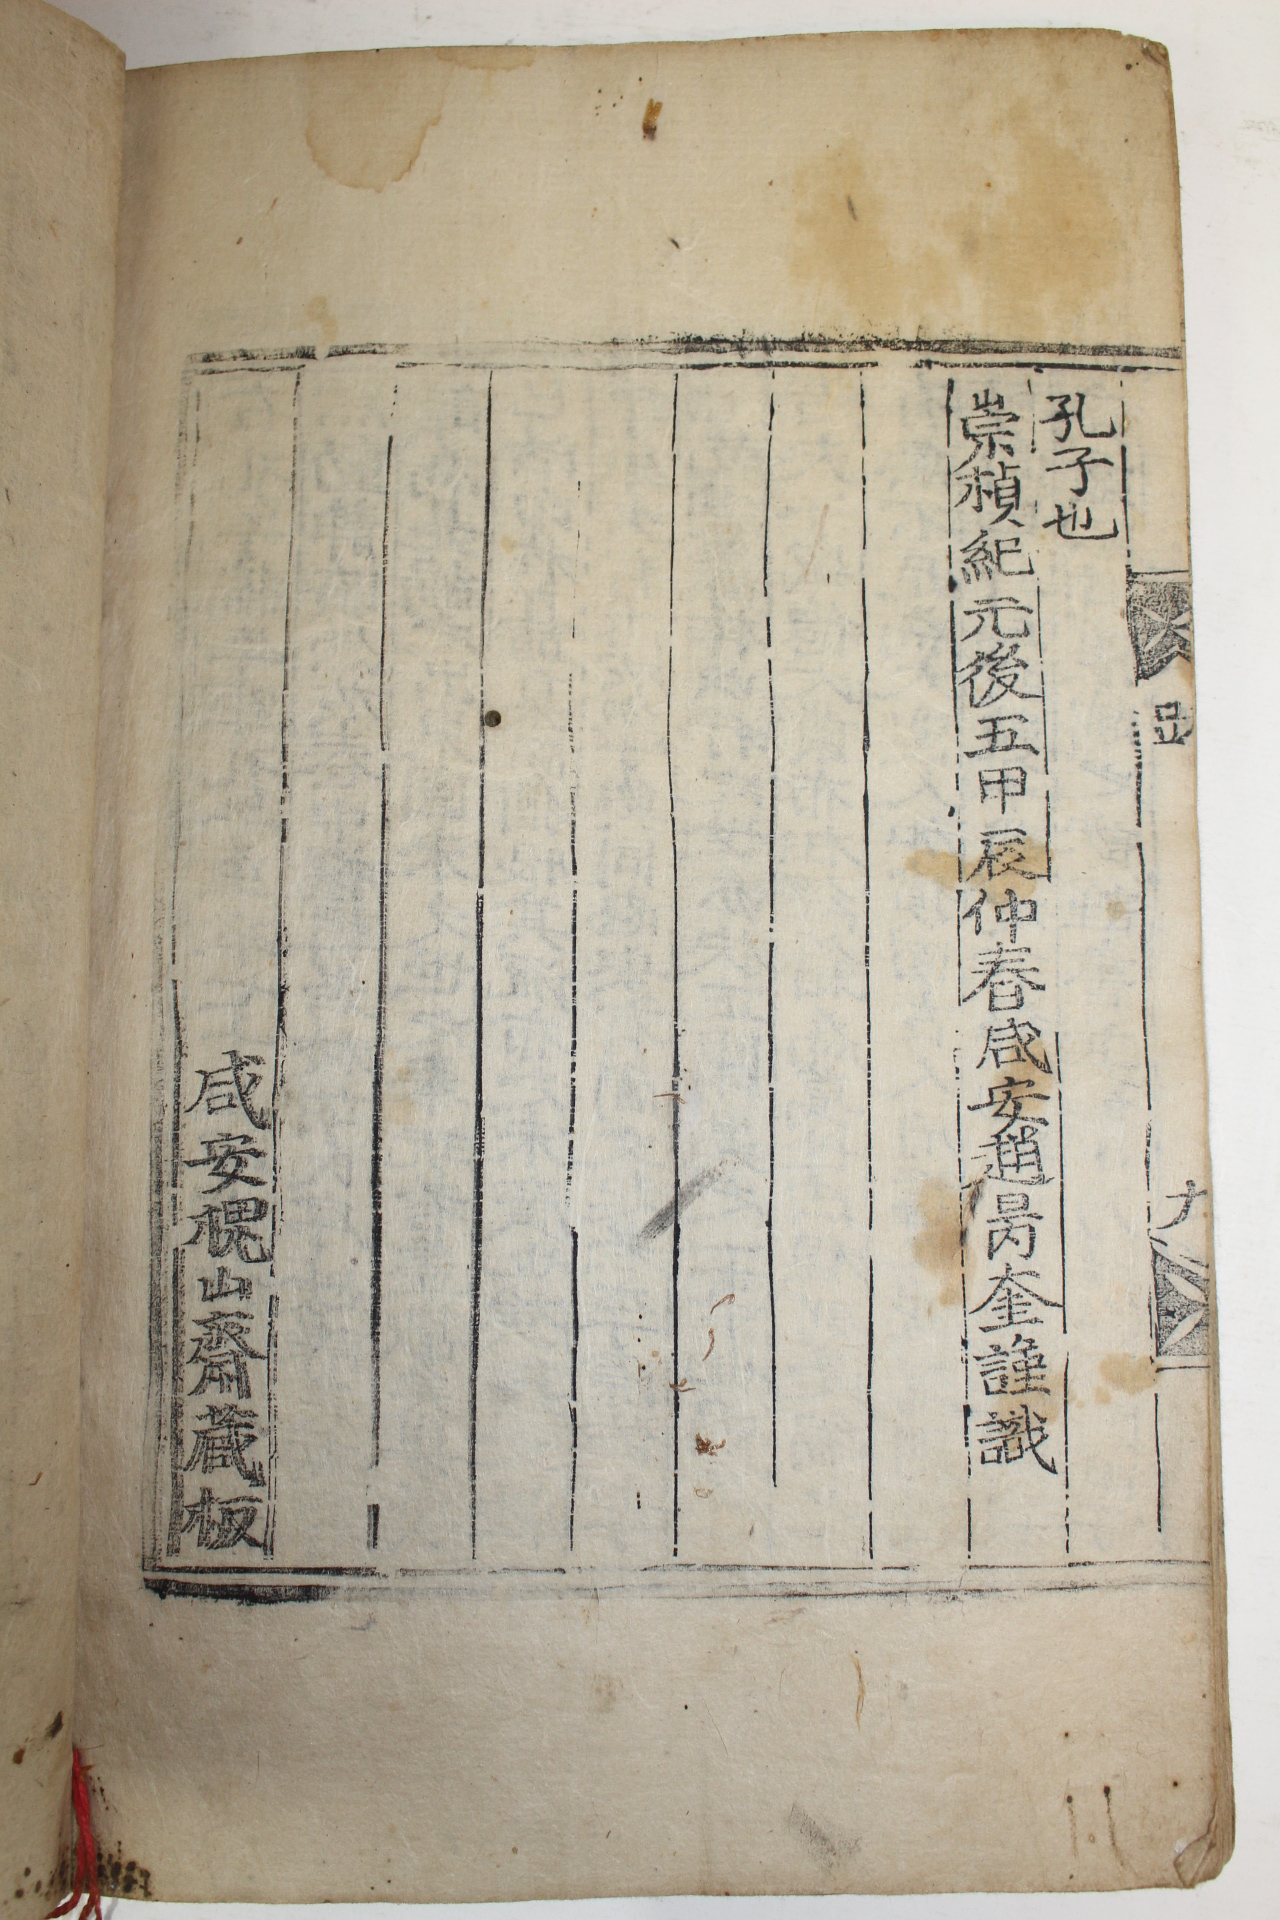 孔子也
崇禎紀元後五甲辰仲春咸安趙昺奎謹識
咸安槐山齋藏板